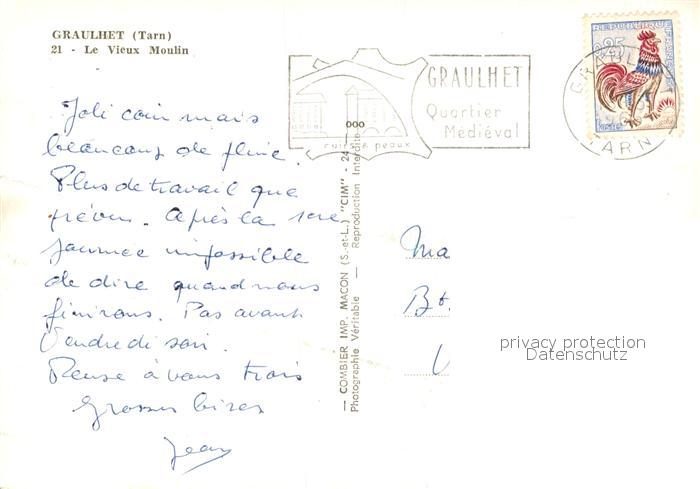 GRAULHET (Tarn)
21 - Le Vieux Moulin
Joli coin mais
beaucoup de pluie.
Plus de travail que
prévu. Après la 1ère
journée impossible
de dire quand nous
finirons. Pas avant
Vendredi soir.
Pense à vous trois
Grosses bises
Jean
— COMBIER IMP. MACON (S.-et-L.) "CIM" - 24
Photographie Véritable — Reproduction Interdite
GRAULHET
Quartier
Médiéval
cuirs & peaux
REPUBLIQUE
0,25
GRAULHET
TARN
Ma
Bt.
privacy protection
Datenschutz